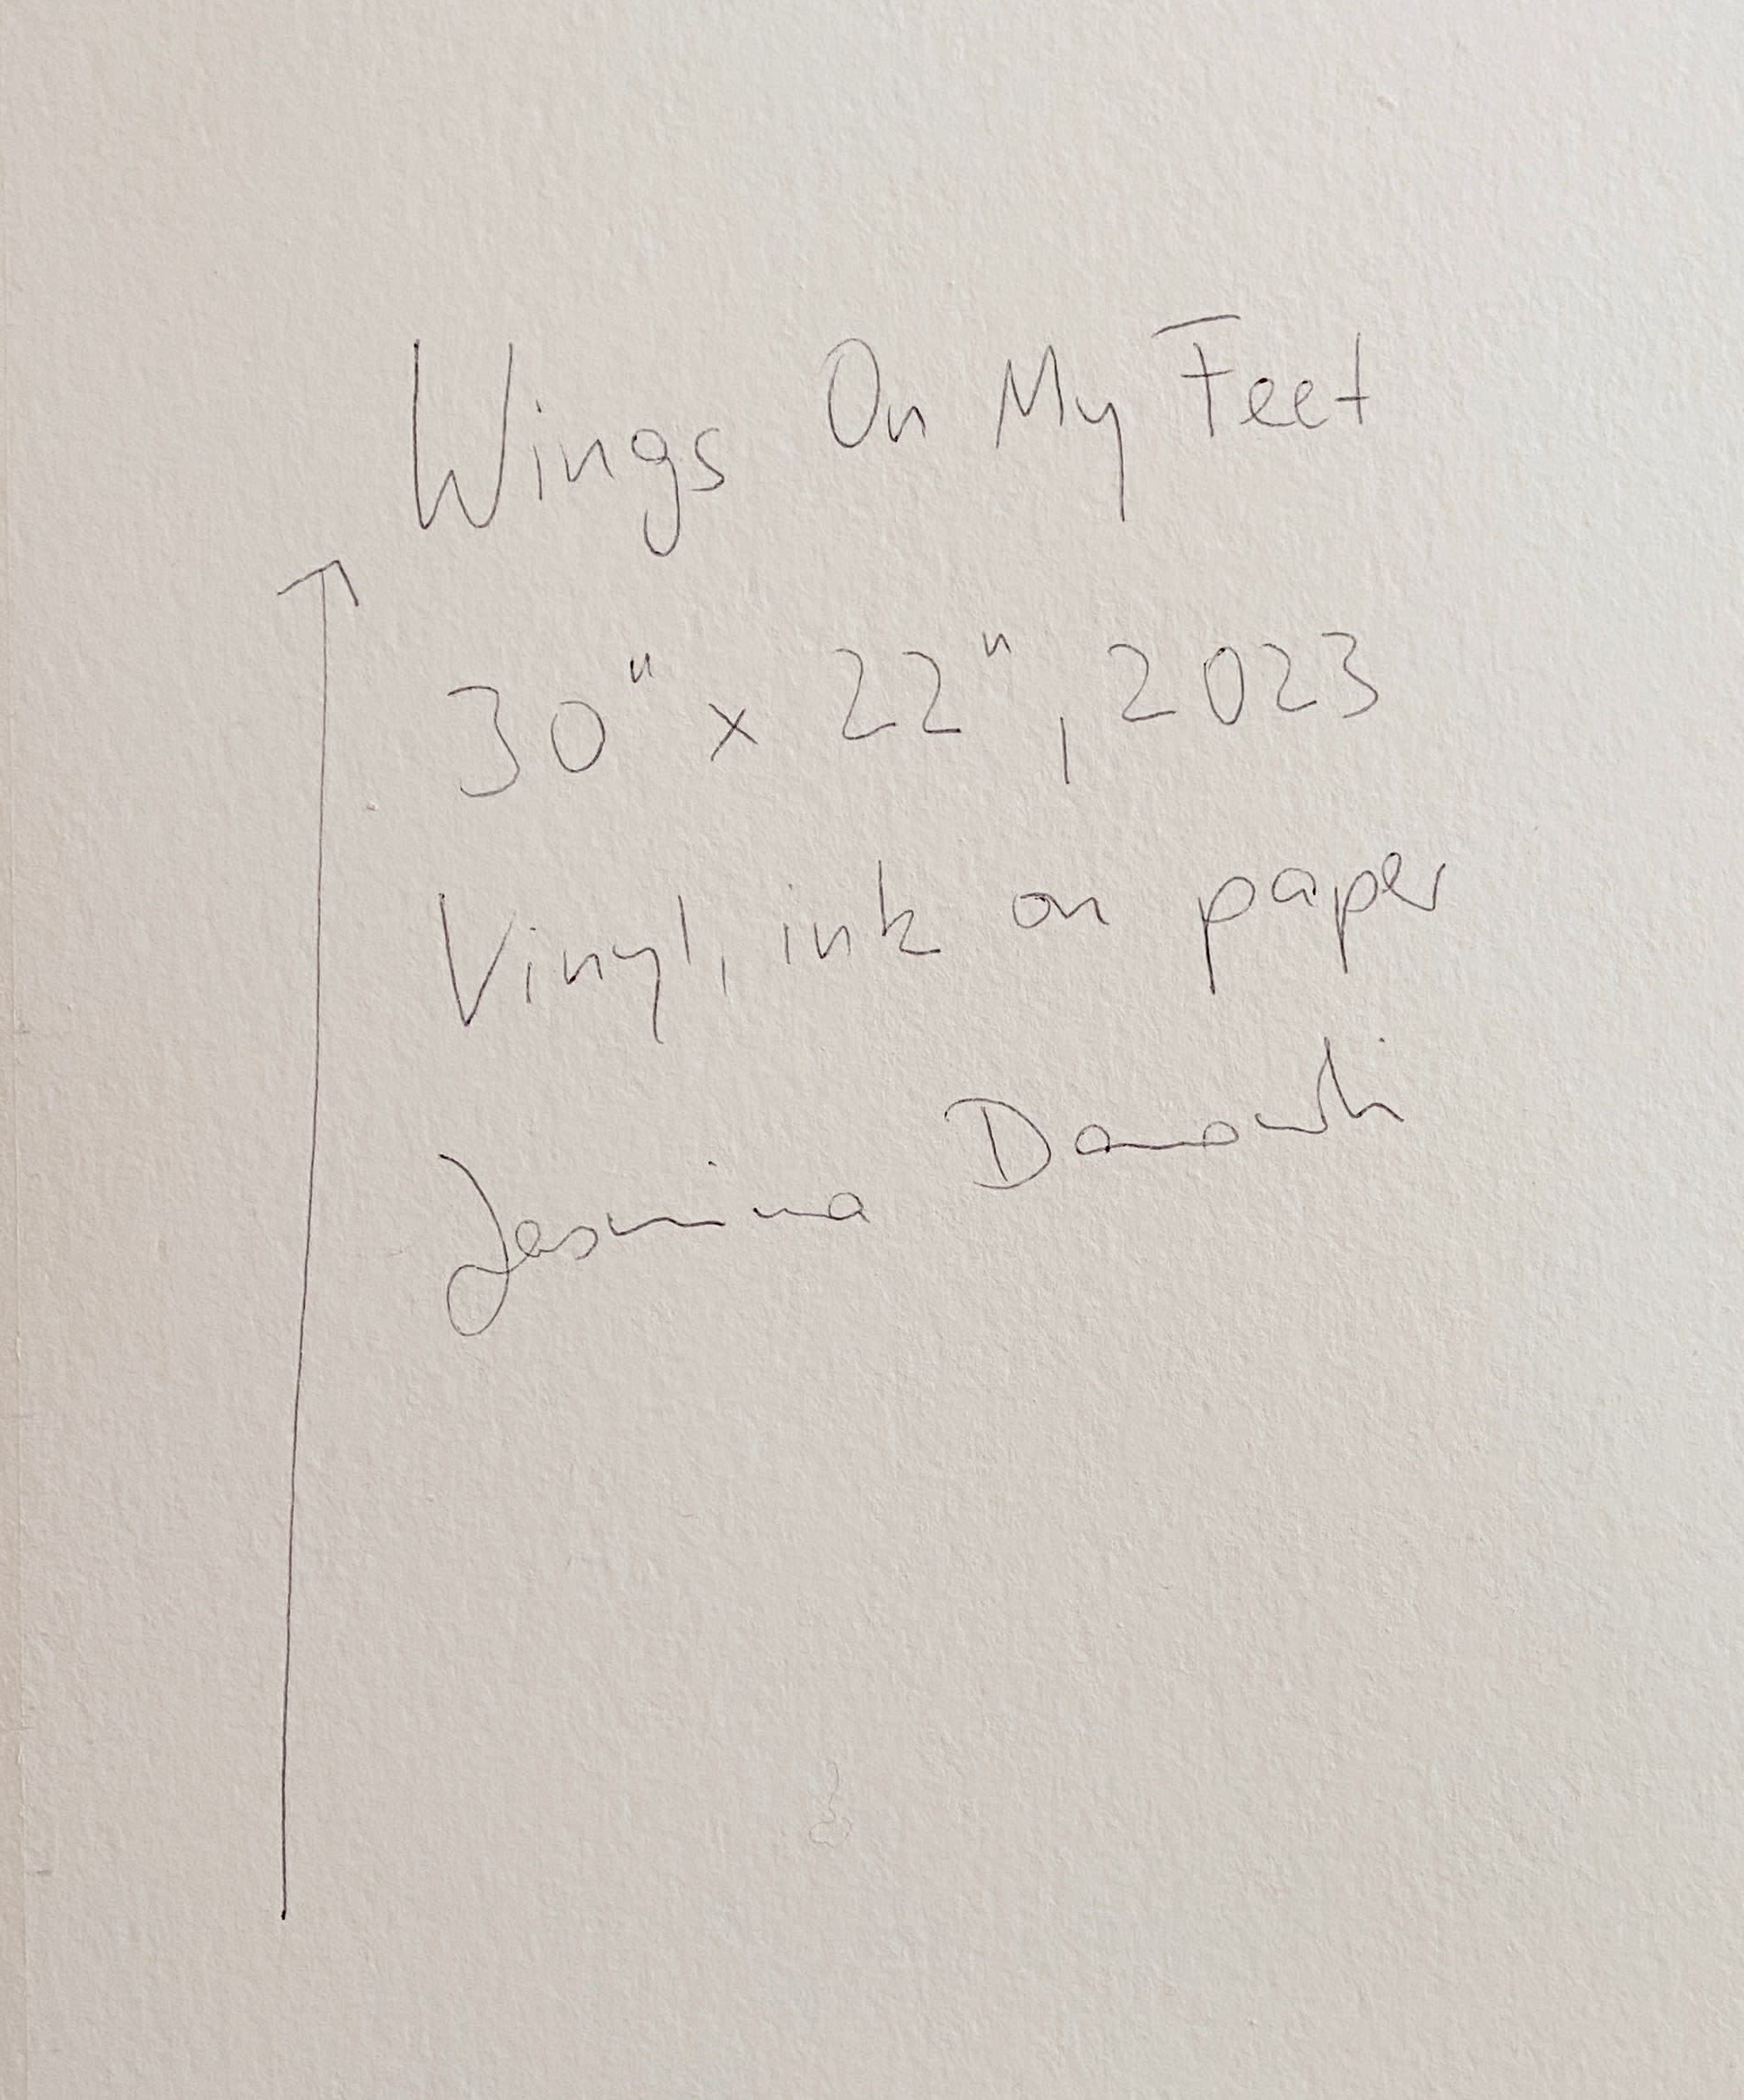 Wings On My Feet
30" x 22", 2023
Vinyl, ink on paper
Jasmina Danowski